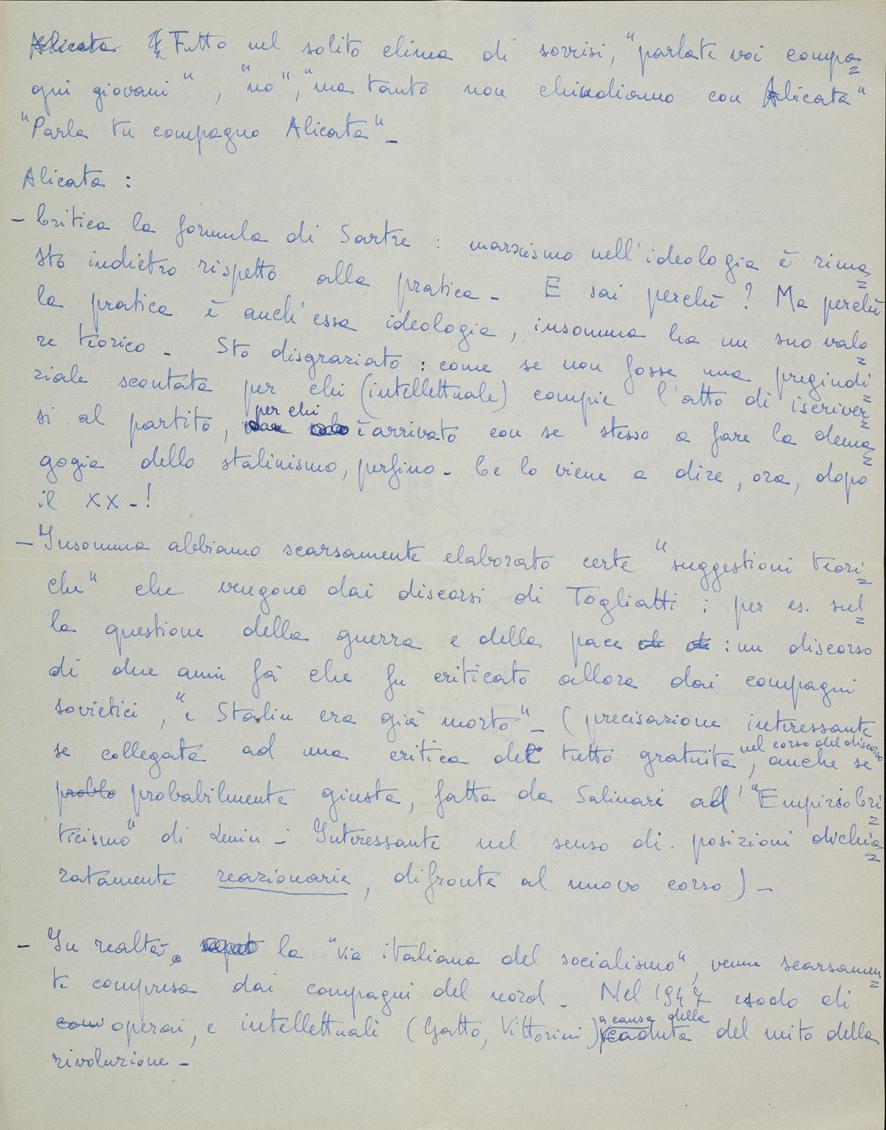 Tutto nel solito clima di sorrisi, "parlate voi compa=
gni giovani", "no", "ma tanto non chiudiamo con Alicata"
"Parla tu compagno Alicata" -
Alicata :
- Critica la formula di Sartre : marxismo nell'ideologia è rima=
sto indietro rispetto alla pratica - E sai perchè ? Ma perchè
la pratica è anch'essa ideologia, insomma ha un suo valo=
re teorico - Sto disgraziato : come se non fosse una pregiudi=
ziale scontata per chi (intellettuale) compie l'atto di iscriver=
si al partito, per chi è arrivato con se stesso a fare la dema=
gogia dello stalinismo, perfino - Ce lo viene a dire, ora, dopo
il XX - !
- Insomma abbiamo scarsamente elaborato certe "suggestioni teori=
che" che vengono dai discorsi di Togliatti ; per es. sul=
la questione della guerra e della pace : un discorso
di due anni fa che fu criticato allora dai compagni
sovietici, "e Stalin era già morto" - (precisazione interessante
se collegata ad una critica del tutto gratuita, nel corso del discorso, anche se
probabilmente giusta, fatta da Salinari all'"Empiriocri=
ticismo" di Lenin - Interessante nel senso di posizioni dichia=
ratamente reazionarie, difronte al nuovo corso) -
- In realtà, la "via italiana del socialismo", venne scarsamen=
te compresa dai compagni del nord - Nel 1947 esodo di
operai, e intellettuali (Gatto, Vittorini) a causa della caduta del mito della
rivoluzione -